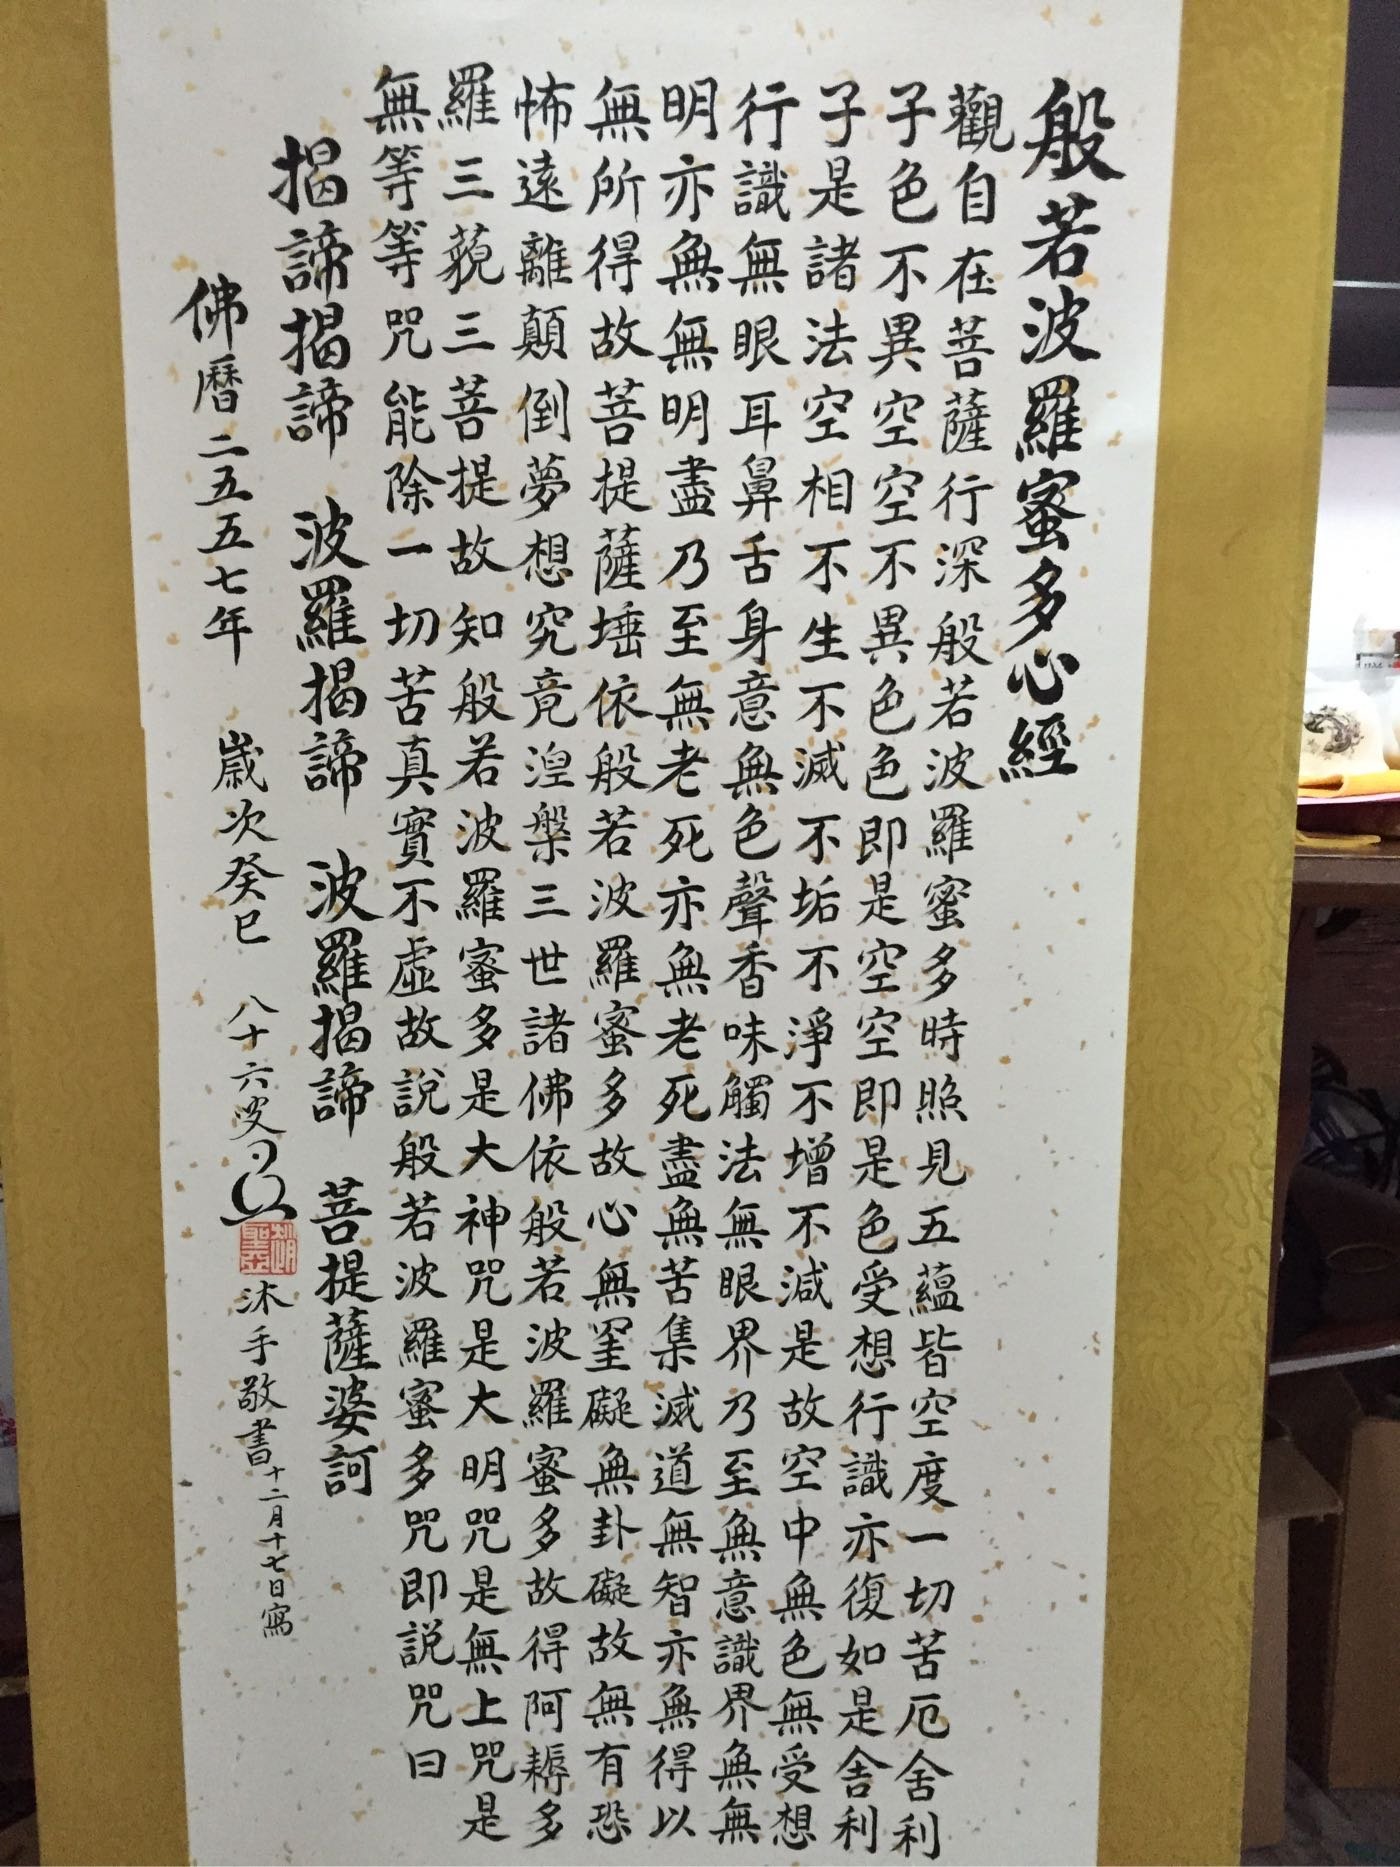 般若波羅蜜多心經
觀自在菩薩行深般若波羅蜜多時照見五蘊皆空度一切苦厄舍利
子色不異空空不異色色即是空空即是色受想行識亦復如是舍利
子是諸法空相不生不滅不垢不淨不增不減是故空中無色無受想
行識無眼耳鼻舌身意無色聲香味觸法無眼界乃至無意識界無無
明亦無無明盡乃至無老死亦無老死盡無苦集滅道無智亦無得以
無所得故菩提薩埵依般若波羅蜜多故心無罣礙無卦礙故無有恐
怖遠離顛倒夢想究竟湼槃三世諸佛依般若波羅蜜多故得阿耨多
羅三藐三菩提故知般若波羅蜜多是大神咒是大明咒是無上咒是
無等等咒能除一切苦真實不虛故說般若波羅蜜多咒即説咒曰
揭諦揭諦 波羅揭諦 波羅揭諦 菩提薩婆訶
佛曆二五五七年 歲次癸巳 八十六叟 沐手敬書十二月十七日寫